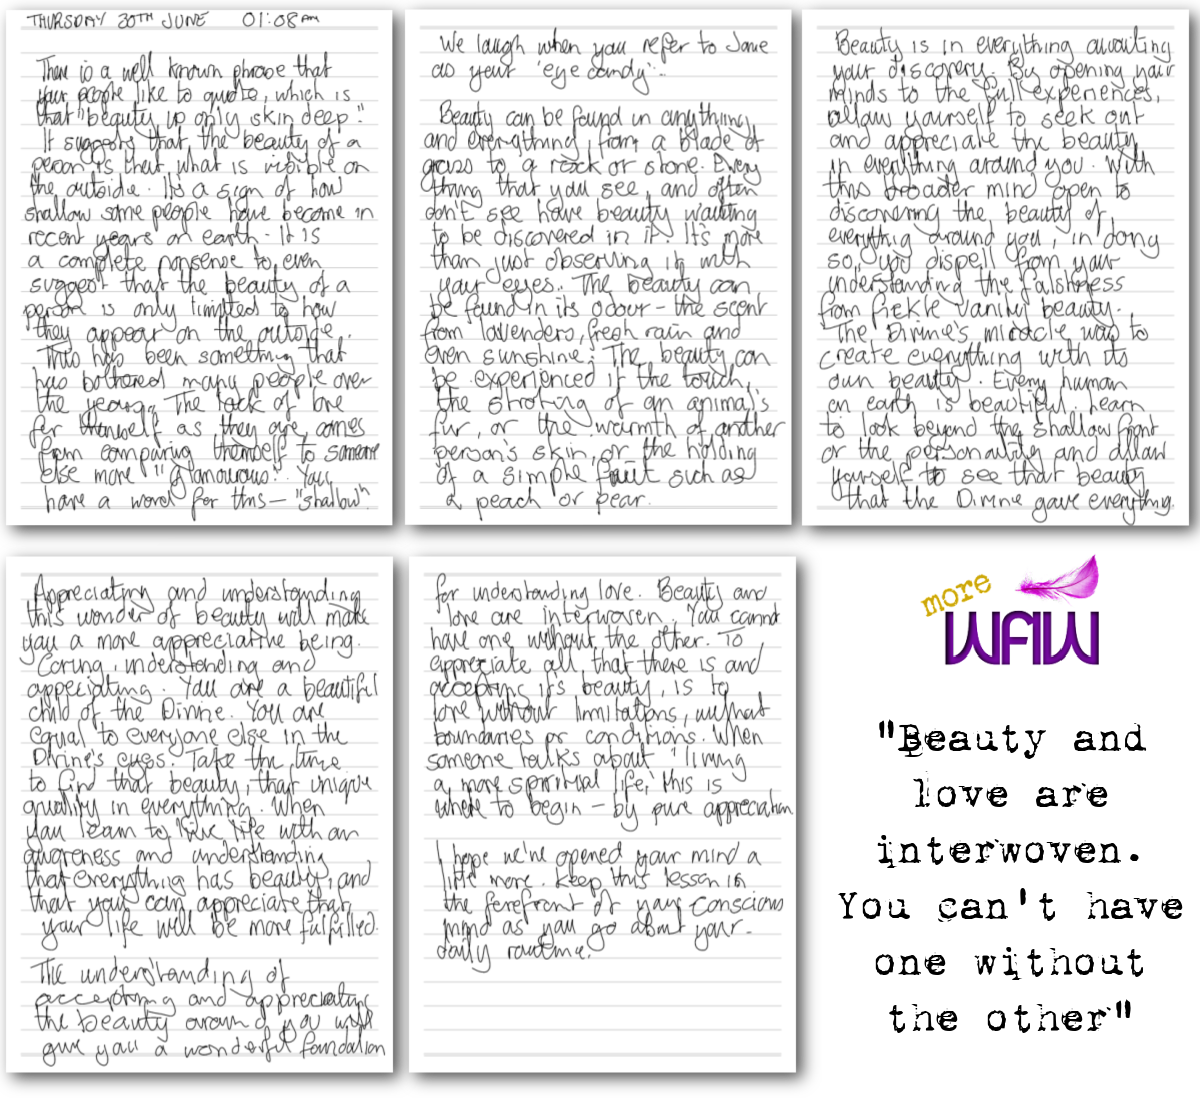 THURSDAY 20TH JUNE 01:08AM
There is a well known phrase that
your people like to quote, which is
that "beauty is only skin deep."
It suggests that the beauty of a
person is that what is visible on
the outside. It's a sign of how
shallow some people have become in
recent years on earth - it is
a complete nonsense to even
suggest that the beauty of a
person is only limited to how
they appear on the outside.
This has been something that
has bothered many people over
the years. The lack of love
for themself as they are, comes
from comparing themself to someone
else more "glamourous". You
have a word for this - "shallow".
We laugh when you refer to Jane
as your 'eye candy'..
Beauty can be found in anything
and everything, from a blade of
grass to a rock or stone. Every
thing that you see, and often
don't see have beauty waiting
to be discovered in it. It's more
than just observing it with
your eyes. The beauty can
be found in its odour - the scent
from lavenders, fresh rain and
even sunshine. The beauty can
be experienced if the touch,
the stroking of an animal's
fur, or the warmth of another
person's skin, or the holding
of a simple fruit such as
a peach or pear.
Beauty is in everything awaiting
your discovery. By opening your
minds to the full experiences,
allow yourself to seek out
and appreciate the beauty
in everything around you. With
this broader mind open to
discovering the beauty of
everything around you, in doing
so, you dispell from your
understanding the falshness
from fickle vanity beauty.
The Divine's miracle was to
create everything with its
own beauty. Every human
on earth is beautiful, learn
to look beyond the shallow front
or the personality and allow
yourself to see that beauty
that the Divine gave everything.
Appreciating and understanding
this wonder of beauty will make
you a more appreciative being.
Caring, understanding and
appeciating. You are a beautiful
child of the Divine. You are
equal to everyone else in the
Divine's eyes. Take the time
to find that beauty, that unique
quality in everything. When
you learn to live life with an
awareness and understanding
that everything has beauty, and
that you can appreciate that,
your life will be more fulfilled.
The understanding of
accepting and appreciating
the beauty around you will
give you a wonderful foundation
for understanding love. Beauty and
love are interwoven. You cannot
have one without the other. To
appreciate all that there is and
accepting its beauty, is to
love without limitations, without
boundaries or conditions. When
someone talks about 'living
a more spiritual life', this is
where to begin - by pure appreciation
I hope we've opened your mind a
little more. Keep this lesson in
the forefront of your conscious
mind as you go about your
daily routine.
more
WAW
"Beauty and
love are
interwoven.
You can't have
one without
the other"